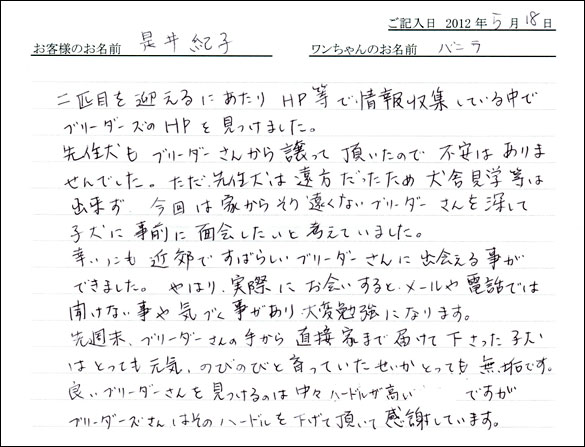 ご記入日 2012 年 5 月 18 日
お客様のお名前 晃井 紀子 ワンちゃんのお名前 バニラ
二匹目を迎えるにあたり HP等で情報収集している中で
ブリーダーズのHPを見つけました。
先住犬もブリーダーさんから譲って頂いたので 不安はありま
せんでした。ただ、先住犬は遠方だったため 犬舎見学等は
出来ず、今回は家からそう遠くないブリーダーさんを探して
子犬に事前に面会したいと考えていました。
幸いにも 近郊ですばらしいブリーダーさんに出会える事が
できました。やはり、実際にお会いすると、メールや電話では
聞けない事や気づく事があり大変勉強になります。
先週末、ブリーダーさんの手から直接家まで届けて下さった子犬
はとっても元気、のびのびと育っていたせいかとっても無垢です。
良いブリーダーさんを見つけるのは中々ハードルが高いですが
ブリーダーズさんはそのハードルを下げて頂いて感謝しています。